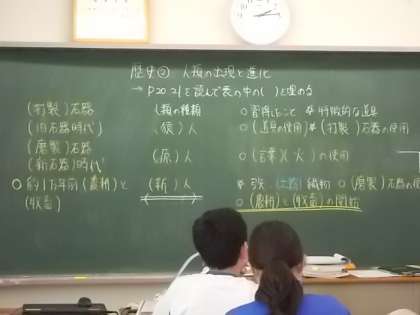 歴史② 人類の出現と進化
→ P20.21を読んで表の中の( )を埋める
(打製)石器
(旧石器時代)
(磨製)石器
(新石器)時代
○約1万年前(農耕)と
(牧畜)
人類の種類
(猿)人
(原)人
(新)人
○習得したこと ※特徴的な道具
○(道具の使用)※(打製)石器の使用
○(言葉)(火)の使用
※弓矢 (土器) 織物 ○(磨製)石器の使
○(農耕)と(牧畜)の開始